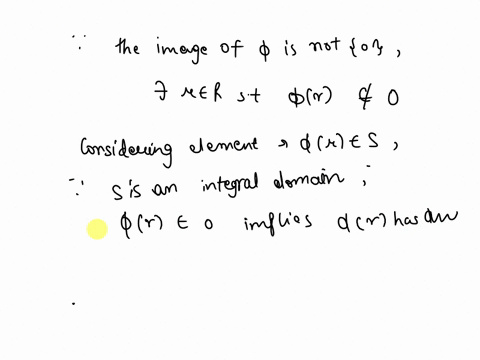 ∵ the image of ϕ is not {0},
∃ r∈R s.t ϕ(r) ∉ 0
Considering element , ϕ(r) ∈ S,
∵ S is an integral domain,
ϕ(r) ∈ 0 implies ϕ(r) has